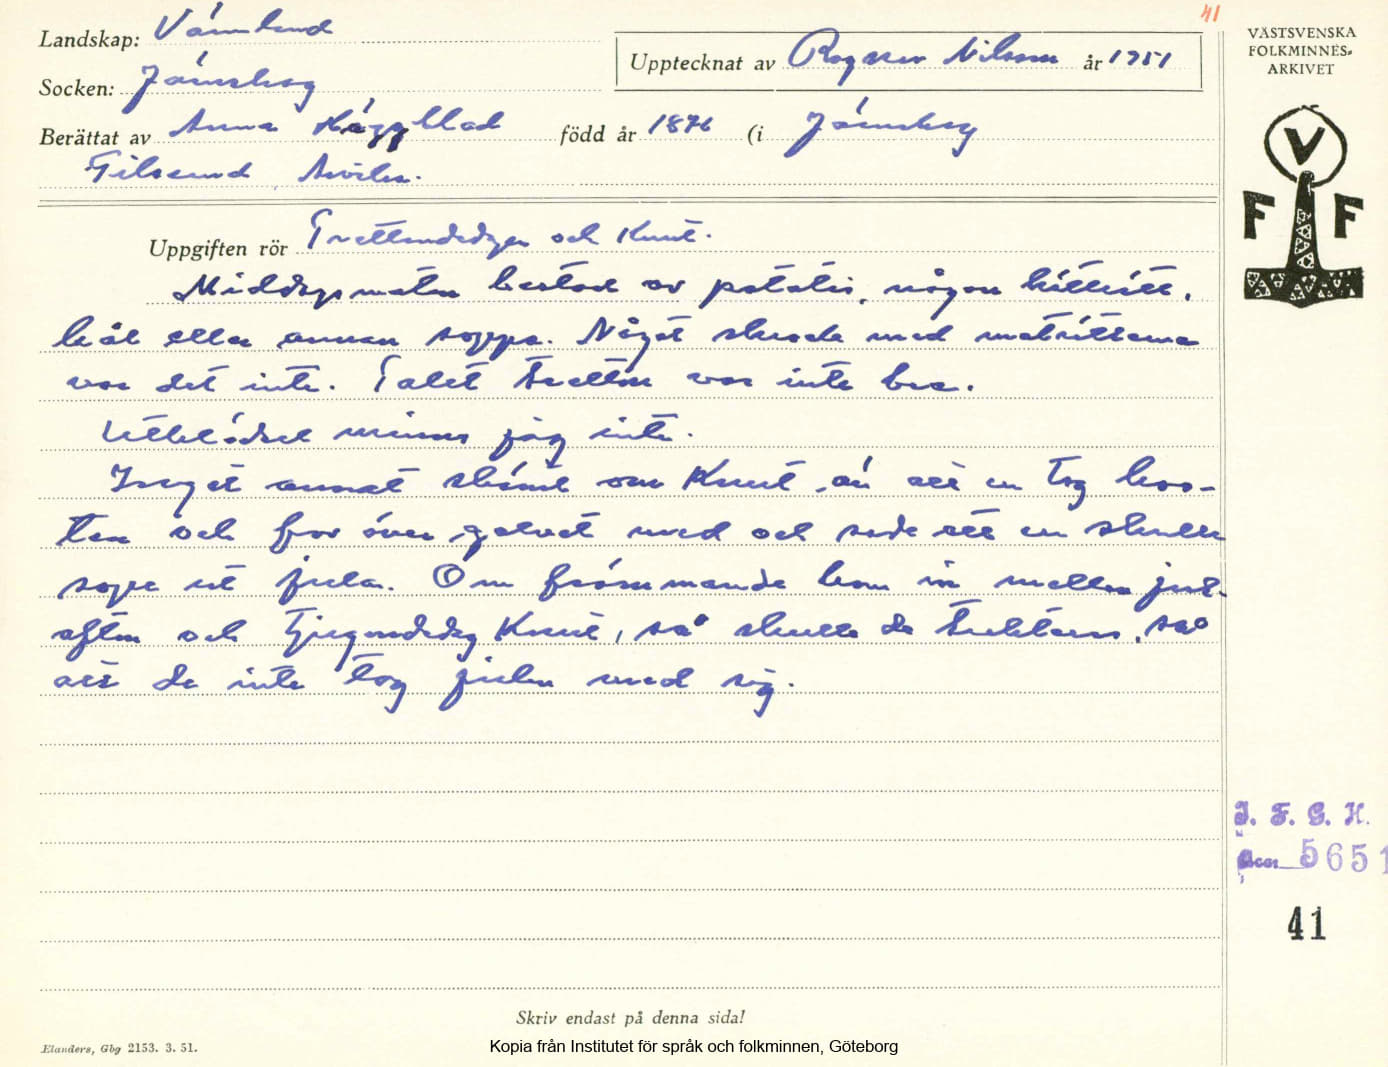 41
Landskap: Värmland
Socken: Järnskog
Upptecknat av Ragnar Nilsson år 1951
Berättat av Anna Hägglad född år 1876 (i Järnskog
Arvika.
VÄSTSVENSKA
FOLKMINNES-
ARKIVET
V
F F
Uppgiften rör Trettondedagen och Knut.
Middagsmaten bestod av potatis, någon kötträtt,
kål eller annan soppa. Något skrock med maträtterna
var det inte. Talet tretton var inte bra.
Utklädsel minns jag inte.
Inget annat skämt om Knut än att en tog kvas-
ten och for över golvet med och sade att en skulle
sopa ut jula. Om främmande kom in mellan jul-
afton och tjugondedag Knut, så skulle de trakteras, så
att de inte tog julen med sig.
I. F. G. H.
Acc. 5651
41
Skriv endast på denna sida!
Elanders, Gbg 2153. 3. 51.
Kopia från Institutet för språk och folkminnen, Göteborg